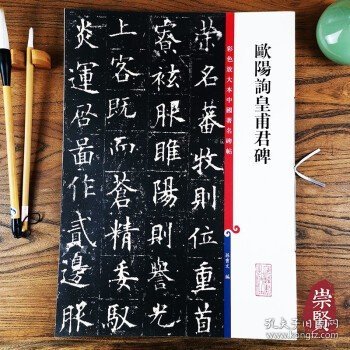 歐陽詢皇甫君碑
彩色放大本中國著名碑帖
孫寶文 編
策名蕃牧則位重首
寮袨服睢陽則譽光
上客既而蒼精委馭
炎運啓圖作貳邊服
崇賢